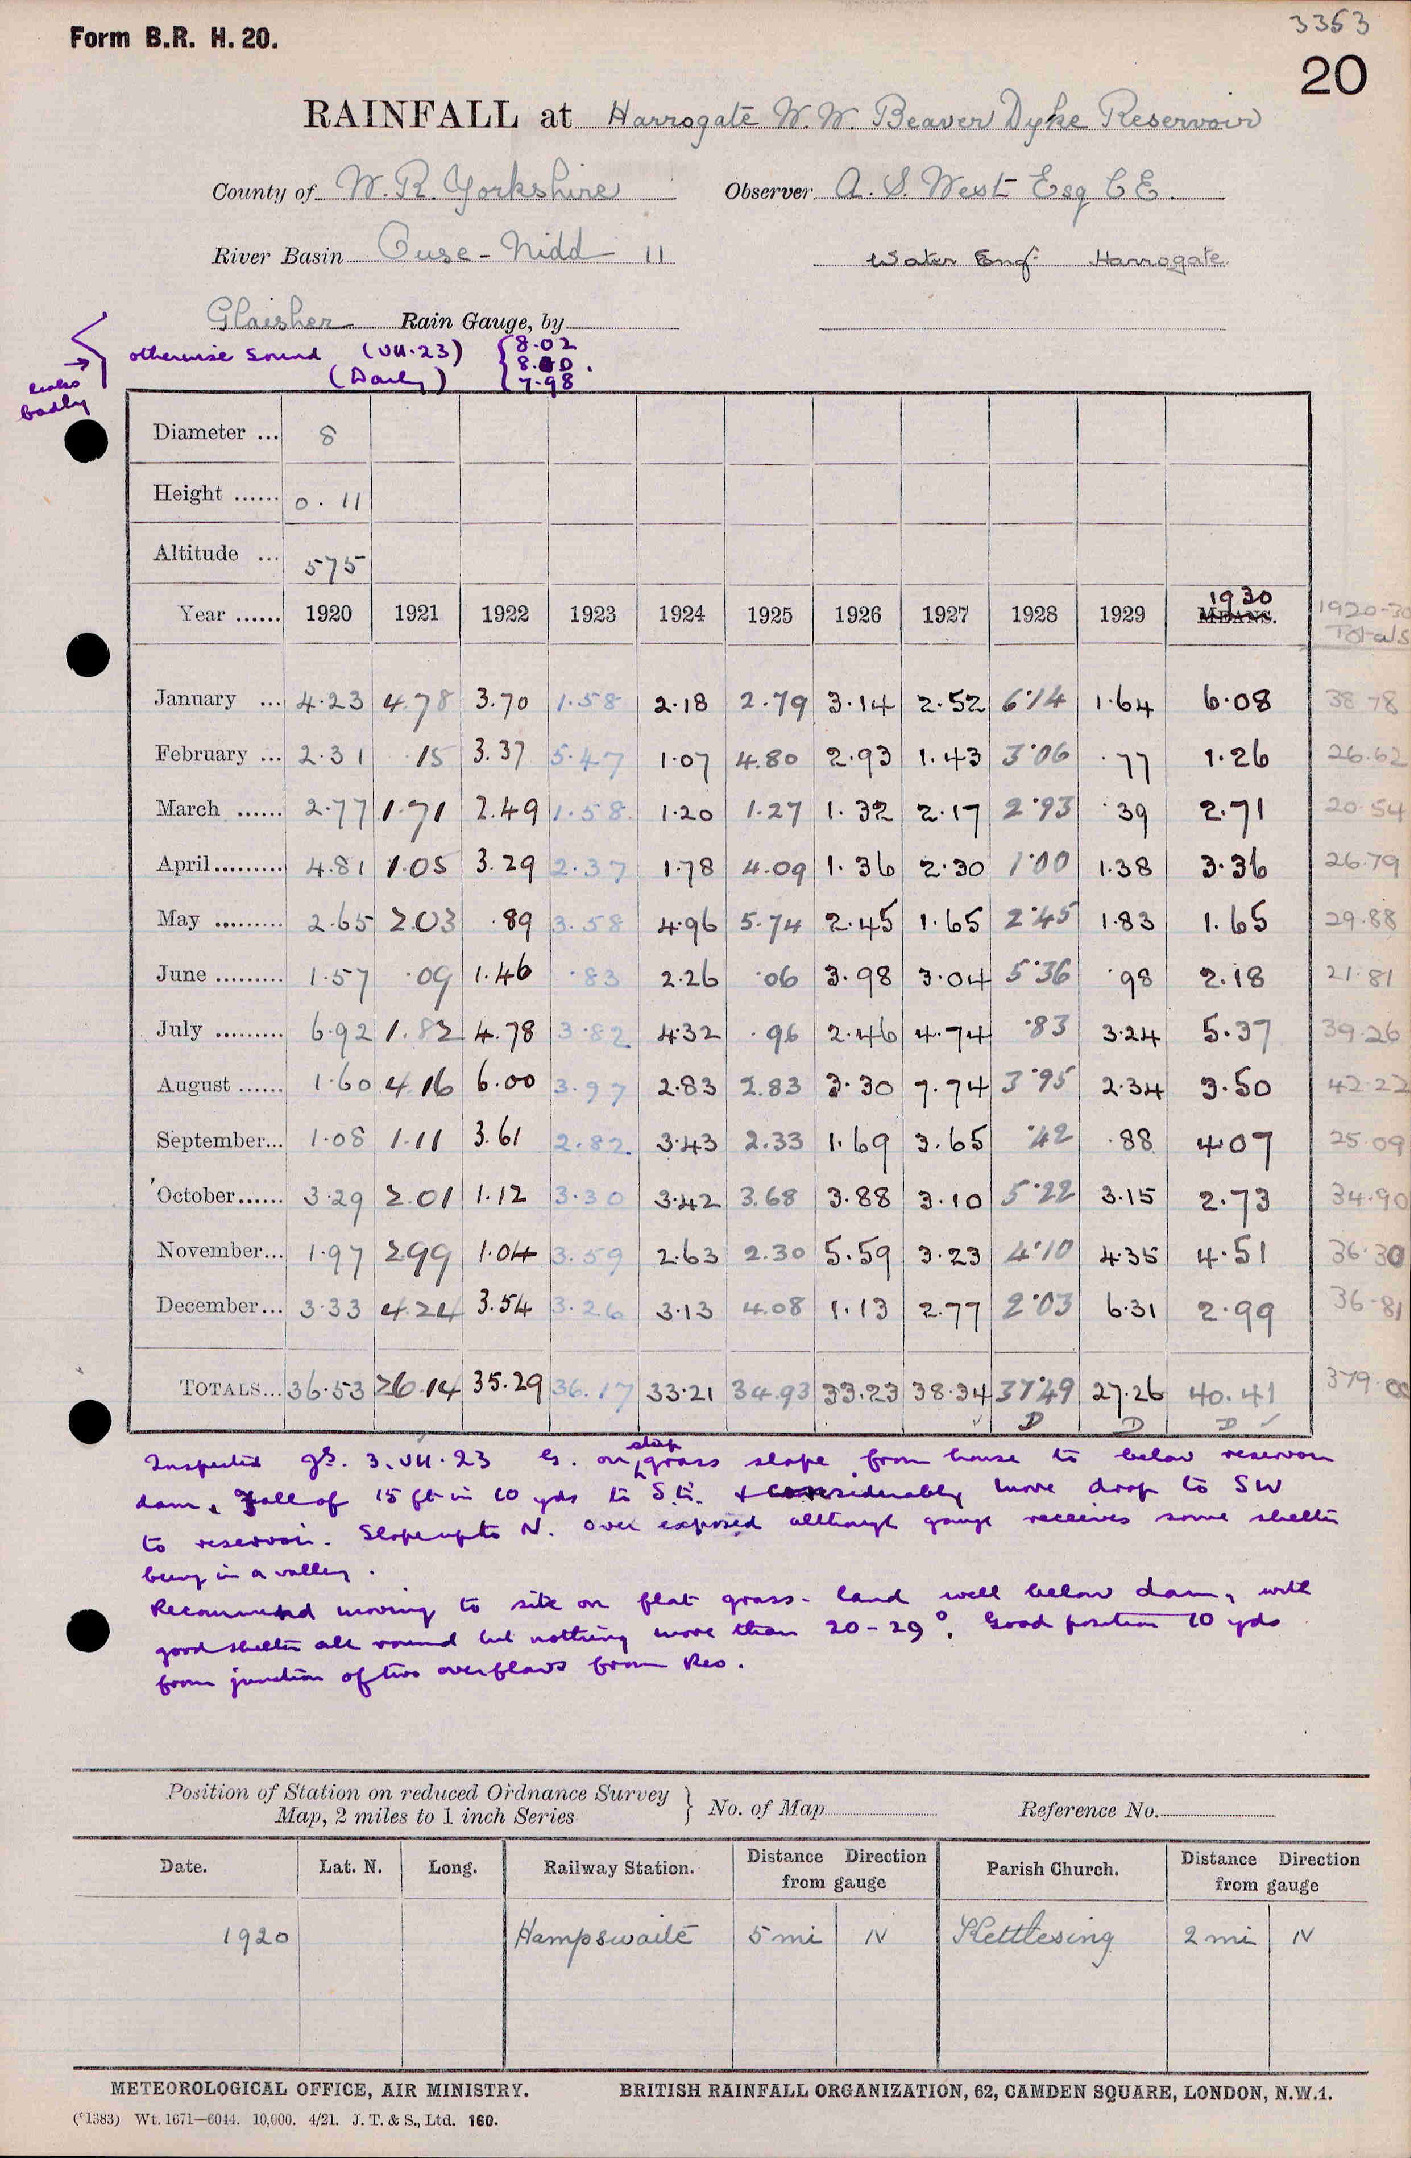 3353
Form B.R. H. 20.
20
RAINFALL at Harrogate W.W. Beaver Dyke Reservoir
County of W.R. Yorkshire Observer A. S. West Esq C E.
River Basin Ouse - Nidd 11 Water Eng: Harrogate
Glaisher Rain Gauge, by
otherwise sound (VII.23) 8.02
8.00
(Daily) 7.98
leaks
badly
Diameter ... 8
Height ...... 0. 11
Altitude ... 575
Year ...... 1920 1921 1922 1923 1924 1925 1926 1927 1928 1929 MEANS. 1930 1920-30 Totals
January ... 4.23 4.78 3.70 1.58 2.18 2.79 3.14 2.52 6.14 1.64 6.08 38.78
February ... 2.31 .15 3.37 5.47 1.07 4.80 2.93 1.43 3.06 .77 1.26 26.62
March ...... 2.77 1.71 2.49 1.58 1.20 1.27 1.32 2.17 2.93 .39 2.71 20.54
April......... 4.81 1.05 3.29 2.37 1.78 4.09 1.36 2.30 1.00 1.38 3.36 26.79
May ......... 2.65 2.03 .89 3.58 4.96 5.74 2.45 1.65 2.45 1.83 1.65 29.88
June ......... 1.57 .09 1.46 .83 2.26 .06 3.98 3.04 5.36 .98 2.18 21.81
July ......... 6.92 1.82 4.78 3.82 4.32 .96 2.46 4.74 .83 3.24 5.37 39.26
August ...... 1.60 4.16 6.00 3.97 2.83 2.83 3.30 7.74 3.95 2.34 3.50 42.22
September... 1.08 1.11 3.61 2.82 3.43 2.33 1.69 3.65 .42 .88 4.07 25.09
October...... 3.29 2.01 1.12 3.30 3.42 3.68 3.88 3.10 5.22 3.15 2.73 34.90
November... 1.97 2.99 1.04 3.59 2.63 2.30 5.59 3.23 4.10 4.35 4.51 36.30
December... 3.33 4.24 3.54 3.26 3.13 4.08 1.13 2.77 2.03 6.31 2.99 36.81
TOTALS... 36.53 26.14 35.29 36.17 33.21 34.93 33.23 38.34 37.49 27.26 40.41 379.00
D D D ✓
Inspected 3.VII.23 on steep grass slope from house to below reservoir
dam, Fall of 15 ft in 10 yds to S.E. & considerably more drop to SW
to reservoir. Slope up to N. Over exposed although gauge receives some shelter
being in a valley.
Recommend moving to site on flat grass-land well below dam, with
good shelter all round but nothing more than 20-29°. Good position 10 yds
from junction of two overflows from Res.
Position of Station on reduced Ordnance Survey
Map, 2 miles to 1 inch Series } No. of Map Reference No.
Date. Lat. N. Long. Railway Station. Distance Direction from gauge Parish Church. Distance Direction from gauge
1920 Hampswaite 5 mi N Kettlesing 2 mi N
METEOROLOGICAL OFFICE, AIR MINISTRY. BRITISH RAINFALL ORGANIZATION, 62, CAMDEN SQUARE, LONDON, N.W.1.
(*1383) Wt. 1671—6044. 10,000. 4/21. J. T. & S., Ltd. 160.